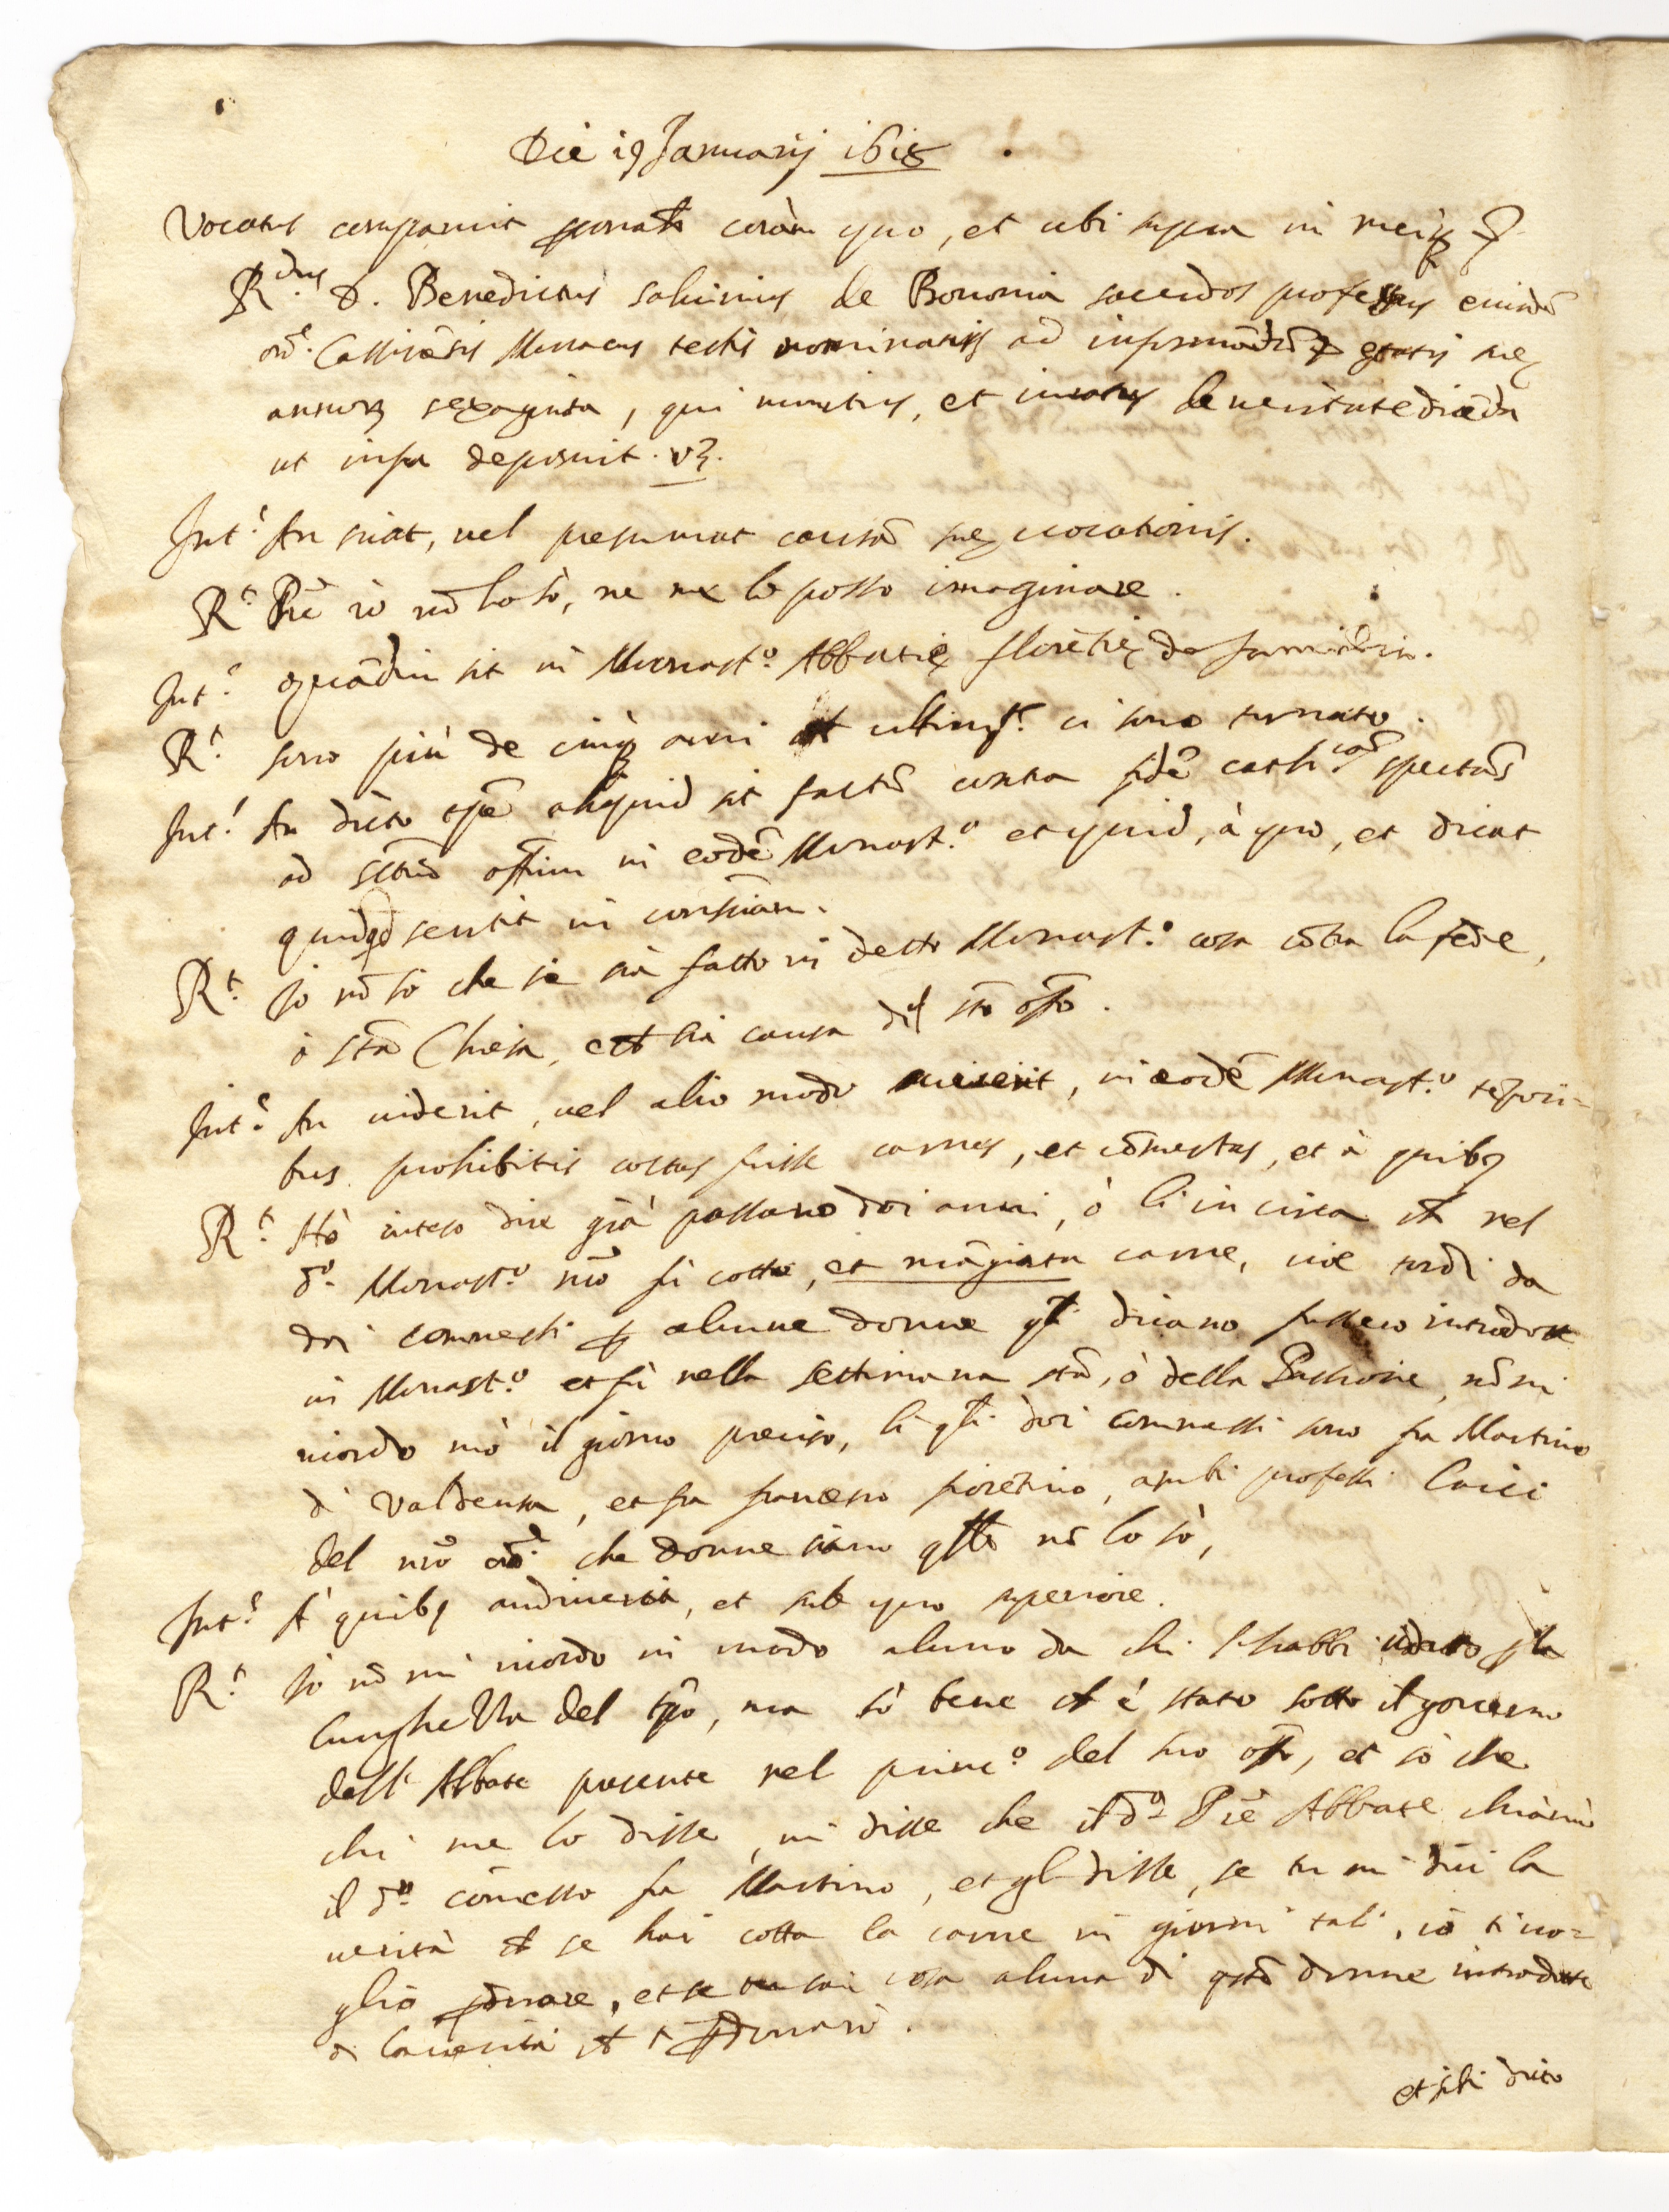 Die 19 Januarij 1618
Vocatus comparuit psonalr coràm quo, et ubi supra in meiq
R.dus D. Benedictus saluinius de Bononia sacerdos professus eiusdē
ord. Cassinēsis Monacus testis nominatus ad informādū etatis suę
annorum sexaginta, qui monitus, et iuratus de ueritate dicēda
ut infra deposuit. vz.
Int.s An sciat, uel presumat causā suę uocationis.
R.t Prē io nō lo sò, ne me lo posso imaginare.
Int.s quādiu sit in Monast.o Abbatię florētię de familia.
R.t sono più de cinq anni ch ultimte. ci sono tornato.
Int.s An dicto tpē aliquid sit factū contra fidē cathcā. spectās
ad sctū offm in eodē Monast.o et quid, à quo, et dicat
quidqd sentit in consciam.
R.t Io nō sò che se sia fatto in detto Monast.o cosa cōtra la fede,
ò stā Chiesa, ch sia causa del sto offo.
Int.s An uiderit, uel alio modo sciuerit, in eodē Monast.o tēpori-
bus prohibitis coctas fuisse carnes, et cōmestas, et à quibq
R.t Hò inteso dire già passano doi anni, ò li in circa ch nel
d.o Monast.o nrō fù cotta, et māgiata carne, cioè tordi da
doi commessi p alcune donne qli diceano fussero introdotte
in Monast.o et fù nella settimana stā, ò della Passione, nō mi
ricordo mò il giorno preciso, li qli doi commessi sono fra Martino
di Valdensa, et fra francesco fioretino, ambi professi laici
del nrō ord. che donne siano qste nō lo sò,
Int.s A quibq audiuerit, et sub quo superiore.
R.t Io nō mi ricordo in modo alcuno da chi l'habbi udito p la
lunghezza del tpō, ma sò bene ch è stato sotto il gouerno
dell' Abbate presente nel princ.o del suo offo, et sò che
chi me lo disse, mi disse che il d.o Prē Abbate chiamò
il d.o cōmesso fra Martino, et gli disse, se tu mi dici la
uerità ch se hai cotta la carne in giorni tali, io ti uo-
glio pdonare, et se tu sai cosa alcuna di qste donne introdotte
di la uerità ch t pdonarò.
et sibi dicto